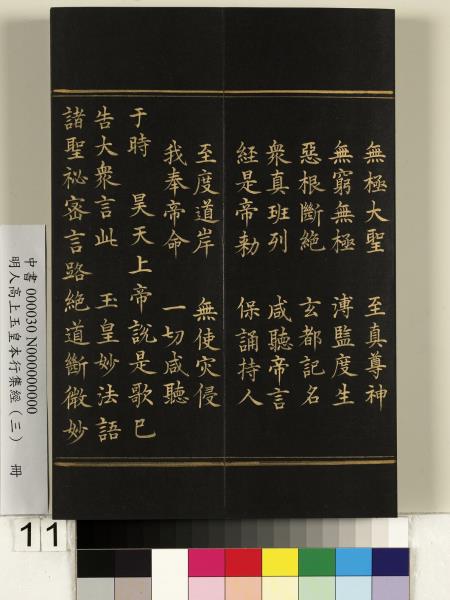 無極大聖　至真尊神
無窮無極　溥監度生
惡根斷絶　玄都記名
衆真班列　咸聽帝言
経是帝勅　保誦持人
至度道岸　無使灾侵
我奉帝命　一切咸聽
于時　昊天上帝說是歌已
告大衆言此　玉皇妙法語
諸聖祕密言路絶道斷微妙
中書 000030 N000000000
明人高上玉皇本行集經（三）　冊
11